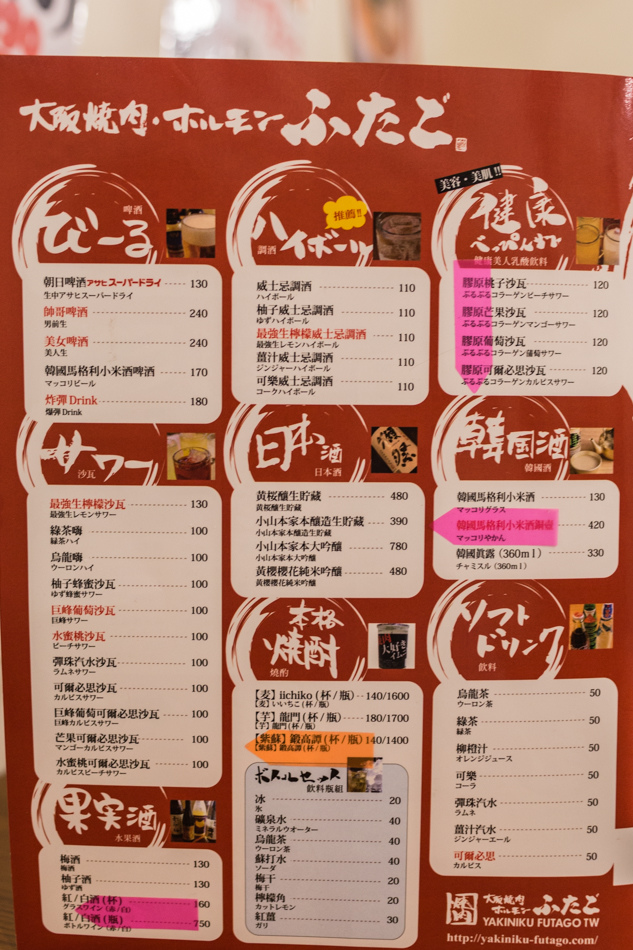 大阪焼肉・ホルモン ふたご
びーる 啤酒
朝日啤酒アサヒスーパードライ 130
生中アサヒスーパードライ
帥哥啤酒 240
男前生
美女啤酒 240
美人生
韓國馬格利小米酒啤酒 170
マッコリビール
炸彈 Drink 180
爆弾 Drink
サワー 沙瓦
最強生檸檬沙瓦 130
最強生レモンサワー
綠茶嗨 100
緑茶ハイ
烏龍嗨 100
ウーロンハイ
柚子蜂蜜沙瓦 100
ゆず蜂蜜サワー
巨峰葡萄沙瓦 100
巨峰サワー
水蜜桃沙瓦 100
ピーチサワー
彈珠汽水沙瓦 100
ラムネサワー
可爾必思沙瓦 100
カルピスサワー
巨峰葡萄可爾必思沙瓦 100
巨峰カルピスサワー
芒果可爾必思沙瓦 100
マンゴーカルピスサワー
水蜜桃可爾必思沙瓦 100
カルピスピーチサワー
果実酒 水果酒
梅酒 130
梅酒
柚子酒 130
ゆず酒
紅/白酒(杯) 160
グラスワイン(赤/白)
紅/白酒(瓶) 750
ボトルワイン(赤/白)
推薦!!
ハイボール 調酒
威士忌調酒 110
ハイボール
柚子威士忌調酒 110
ゆずハイボール
最強生檸檬威士忌調酒 110
最強生レモンハイボール
薑汁威士忌調酒 110
ジンジャーハイボール
可樂威士忌調酒 110
コークハイボール
日本酒 日本酒
黃桜釀生貯藏 480
黄桜醸生貯蔵
小山本家本釀造生貯藏 390
小山本家本醸造生貯蔵
小山本家本大吟釀 780
小山本家本大吟醸
黃櫻櫻花純米吟釀 480
黄櫻櫻花純米吟醸
本格焼酎 燒酌
【麦】iichiko(杯/瓶) 140/1600
【麦】いいちこ(杯/瓶)
【芋】龍門(杯/瓶) 180/1700
【芋】龍門(杯/瓶)
【紫蘇】鍛高譚(杯/瓶) 140/1400
【紫蘇】鍛高譚(杯/瓶)
ボトルセット 飲料瓶組
冰 20
氷
礦泉水 40
ミネラルウオーター
烏龍茶 40
ウーロン茶
蘇打水 40
ソーダ
梅干 20
梅干
檸檬角 20
カットレモン
紅薑 30
ガリ
美容・美肌!!
健康べっぴんさん
健康美人乳酸飲料
膠原桃子沙瓦 120
ぷるぷるコラーゲンピーチサワー
膠原芒果沙瓦 120
ぷるぷるコラーゲンマンゴーサワー
膠原葡萄沙瓦 120
ぷるぷるコラーゲン葡萄サワー
膠原可爾必思沙瓦 120
ぷるぷるコラーゲンカルピスサワー
韓国酒 韓國酒
韓國馬格利小米酒 130
マッコリグラス
韓國馬格利小米酒銅壺 420
マッコリやかん
韓國眞露(360ml) 330
チャミスル(360ml)
ソフトドリンク 飲料
烏龍茶 50
ウーロン茶
綠茶 50
緑茶
柳橙汁 50
オレンジジュース
可樂 50
コーラ
彈珠汽水 50
ラムネ
薑汁汽水 50
ジンジャーエール
可爾必思 50
カルピス
大阪焼肉ホルモン ふたご
YAKINIKU FUTAGO TW
http://yakiniku-futago.com/